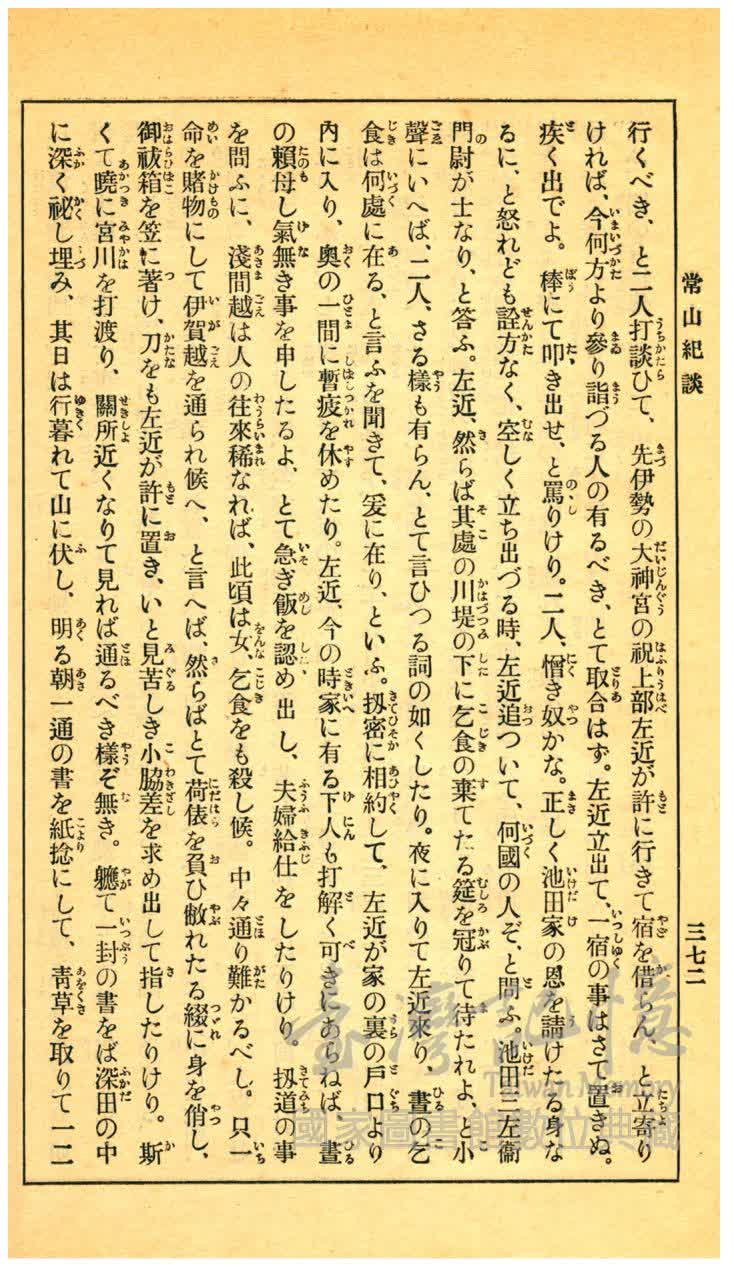 常山紀談
三七二
行くべき、と二人打談ひて、先伊勢の大神宮の祝上部左近が許に行きて宿を借らん、と立寄り
ければ、今何方より參り詣づる人の有るべき、とて取合はず。左近立出て、一宿の事はさて置きぬ。
疾く出でよ。棒にて叩き出せ、と罵りけり。二人、憎き奴かな。正しく池田家の恩を請けたる身な
るに、と怒れども詮方なく、空しく立ち出づる時、左近追ついて、何國の人ぞ、と問ふ。池田三左衞
門尉が士なり、と答ふ。左近、然らば其處の川堤の下に乞食の棄てたる筵を冠りて待たれよ、と小
聲にいへば、二人、さる樣も有らん、とて言ひつる詞の如くしたり。夜に入りて左近來り、晝の乞
食は何處に在る、と言ふを聞きて、爰に在り、といふ。扨密に相約して、左近が家の裏の戶口より
內に入り、奧の一間に暫疲を休めたり。左近、今の時家に有る下人も打解く可きにあらねば、晝
の賴母し氣無き事を申したるよ、とて急ぎ飯を認め出し、夫婦給仕をしたりけり。扨道の事
を問ふに、淺間越は人の往來稀なれば、此頃は女、乞食をも殺し候。中々通り難かるべし。只一
命を賭物にして伊賀越を通られ候へ、と言へば、然らばとて荷俵を負ひ敝れたる綴に身を俏し、
御祓箱を笠に著け、刀をも左近が許に置き、いと見苦しき小脇差を求め出して指したりけり。斯
くて曉に宮川を打渡り、關所近くなりて見れば通るべき樣ぞ無き。軈て一封の書をば深田の中
に深く祕し埋み、其日は行暮れて山に伏し、明る朝一通の書を紙捻にして、靑草を取りて一二
臺灣記憶
Taiwan Memory
國家圖書館數位典藏